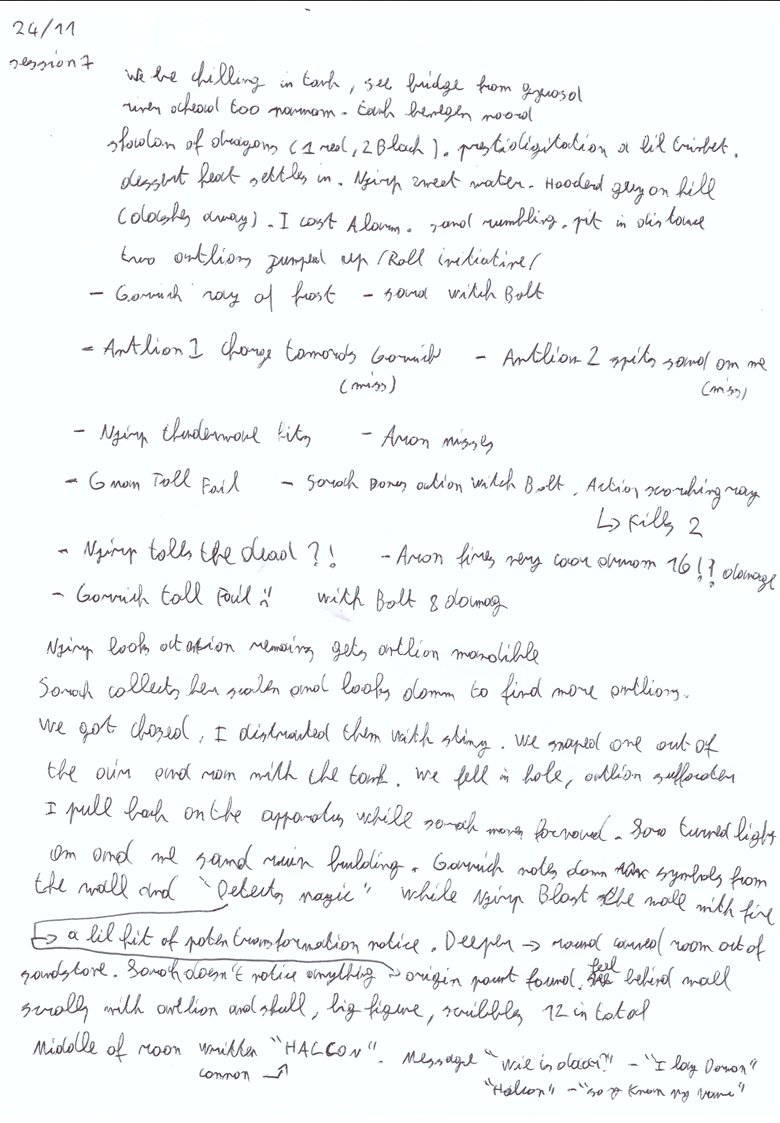 24/11
session 7
we be chilling in tank, see bridge from
river ahead too narrow. tank bewegen noord
shadow of dragons (1 red, 2 Black). prestidigitation a lil
dessert heat settles in. Nzirp sweet water. Hooded guy on hill
(dashes away). I cast Alarm. sand rumbling. pit in distance
two antlions jumped up /Roll initiative/
- Gornich ray of frost - sarah witch Bolt
- Antlion 1 charge towards Gornich - Antlion 2 spits sand on me
(miss) (miss)
- Nzirp thunderwave hits - Aron misses
- Gnom Toll Fail - Sarah Bones action witch Bolt, Action scorching ray
↳ Kills 2
- Nzirp tolls the dead ?! - Aron fires very cool 16 !? damage
- Gornich toll Fail :( witch Bolt 8 damag
Nzirp looks at antlion remains gets antlion mandible
Sarah collects her and looks down to find more antlions.
we got chased, I distracted them with sling. we snaped one out of
the air and ran with the tank. we fell in hole, antlion suffocates
I pull back on the apparatus while sarah moves forward. Sara turned lights
on and we sand ruin building. Gornich notes down symbols from
the wall and "Detects magic" while Nzirp Blast the wall with fire
↳ a lil bit of transformation notice. Deeper → round carved room out of
sandstone. Sarah doesn't notice anything → origin point found, feel behind wall
scrolls with antlion and skull, big figure, scribbles 12 in total
Middle of room written "HALCON". Message "Wie is daar?" - "I
common "Halcon" - "so y know my name"